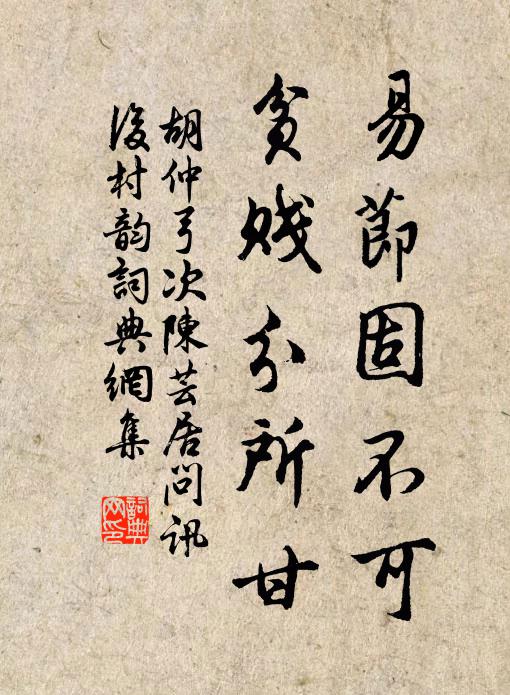 易節固不可
貧賤分所甘
胡仲弓次陳芸居問訊
後村韵詞典網集
詞典網印